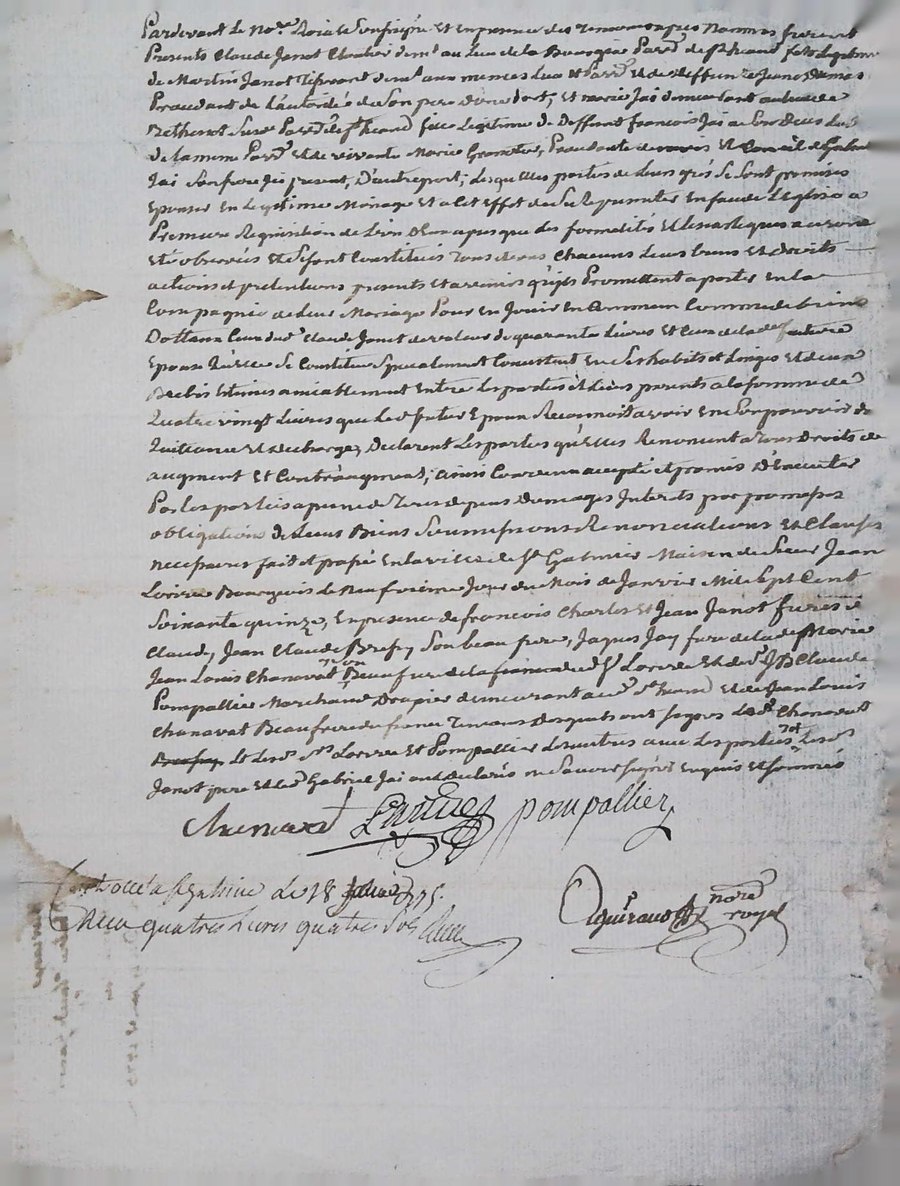 Pardevant Le No.re Roial Soussigné Et En presence des Temoins cy apres Nommés furent
Presents Claude Janot dem.t au Lieu de la Bourgea Parr.e de s.t heand fils Legitime
de Martin Janot Tisserand dem.t aux memes Lieu et Parr.e Et de deffunte Jeanne Dumas
Procedant de L'autorité de Son pere d'une part, Et marie Jai demeurant au Lieu de
Sur.e Parr.e de s.t heand fille Legitime de Deffunt françois Jai
de la meme Parr.e et de vivante Marie Procedante de Et Conseil de Gabriel
Jai Son frere Ici present, D'autre part; Lesquelles parties de Leurs grés Se Sont promises
Epouser En Legitime Mariage Et a Cet Effet de Se Presenter En face de L'Eglise a
Premiere Requisition de L'un D'eux apres que des formalités Et
Eté observées Et Se font Constitués Tous deux Chacuns Leurs biens Et Droits
actions et pretentions presents Et avenirs qu'ils Promettent aporter En la
Compagnie de Leur Mariage Pour En Jouir En Commun Comme de biens
Dottaux Ceux dud.t Claude Janot de valeur de quarante Livres Et Ceux de lad.e future
Epouse qu'Elle Se Constitue Specialement Consistent En Ses habits et Linges Et deux
Brebis Estimés amiablement Entre Les parties et Leurs parents a la Somme de
Quatre vingt Livres que Led.t futur Epoux Reconnoit avoir En Son pouvoir
Quittance Et decharge, Declarent Les parties qu'Elles Renoncent a Tous Droits de
augment Et Contr'augment; ainsi Convenu accepté et promis D'Executer
Par Les parties a peine de Tous depens Domages Interets par
obligations de Leurs Biens Soumissions Renonciations Et Clauses
necessaires fait et passé En la ville de S.t Galmier Maison de Sieur Jean
Larrue Bourgeois Le Neufvieme Jour du Mois de Janvier Mil Sept Cent
Soixante quinze, En presence de françois Charles Et Jean Janot freres
Claude, Jean Claude Son beau frere, Jaques Jay frere de lad.e Marie
Jean Louis Chanavat Beau frere de la fiancée Et de Claude
Pompallier Marchand Drapier demeurant aud.t S.t heand Et de Jean Louis
Chanavat Beau frere desquels ont Signés Led.t Chanavat
Et Les.d S.rs Larrue Et Pompallier Les autres avec Les parties
Janot pere et Led.t Gabriel Jai ont declarés ne Savoir Signer Enquis Et Sommés
Chanavat Larrue pompallier
Controllé a St galmier Le 18 Janvier 1775.
Reçu quatres Livres quatres Sols
no.re
royal